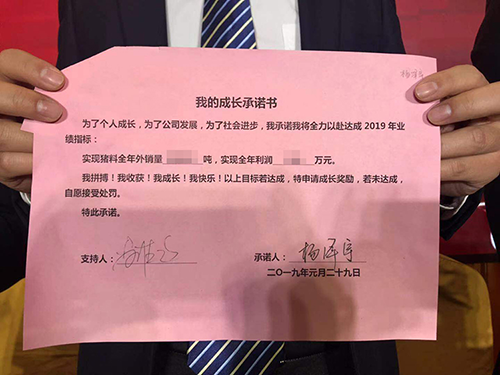 我的成长承诺书
为了个人成长，为了公司发展，为了社会进步，我承诺我将全力以赴达成 2019 年业
绩指标：
实现猪料全年外销量 吨，实现全年利润 万元。
我拼搏！我收获！我成长！我快乐！以上目标若达成，特申请成长奖励，若未达成，
自愿接受处罚。
特此承诺。
支持人： 承诺人：杨泽宇
二〇一九年元月二十九日